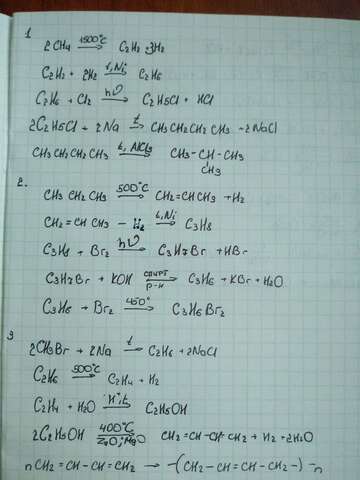 1
2CH4 1500°C → C2H2 3H2
C2H2 + 2H2 t,Ni → C2H6
C2H6 + Cl2 hν → C2H5Cl + HCl
2C2H5Cl + 2Na t → CH3CH2CH2CH3 + 2NaCl
CH3CH2CH2CH3 t, AlCl3 → CH3-CH-CH3
CH3
2.
CH3 CH2 CH3 500°C → CH2=CHCH3 + H2
CH2=CH CH3 - H2 t,Ni → C3H8
C3H8 + Br2 hν → C3H7Br + HBr
C3H7Br + KOH спирт р-н → C3H6 + KBr + H2O
C3H6 + Br2 450° → C3H6Br2
3
2CH3Br + 2Na t → C2H6 + 2NaCl
C2H6 500°C → C2H4 + H2
C2H4 + H2O H+,t → C2H5OH
2C2H5OH 400°C ZnO,MgO → CH2=CH-CH=CH2 + H2 + 2H2O
nCH2=CH-CH=CH2 → -(CH2-CH=CH-CH2-)-n